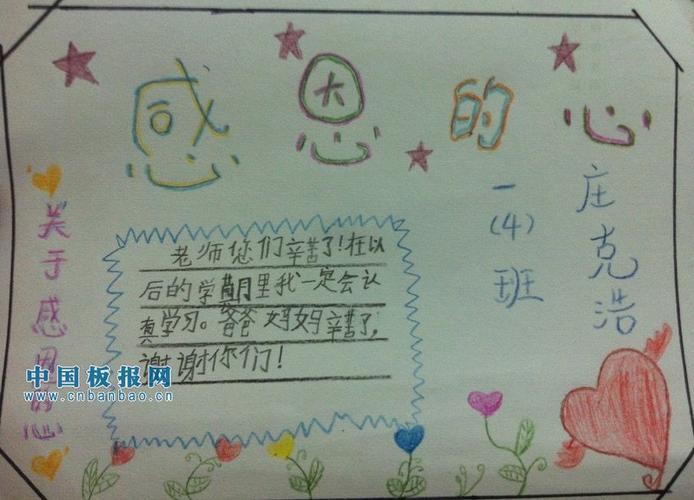 感恩的心
一(4)班
庄克浩
关于感恩的心
老师您们辛苦了!在以
后的学期里我一定会认
真学习。爸爸妈妈辛苦了,
谢谢你们!
中国板报网
www.cnbanbao.cn